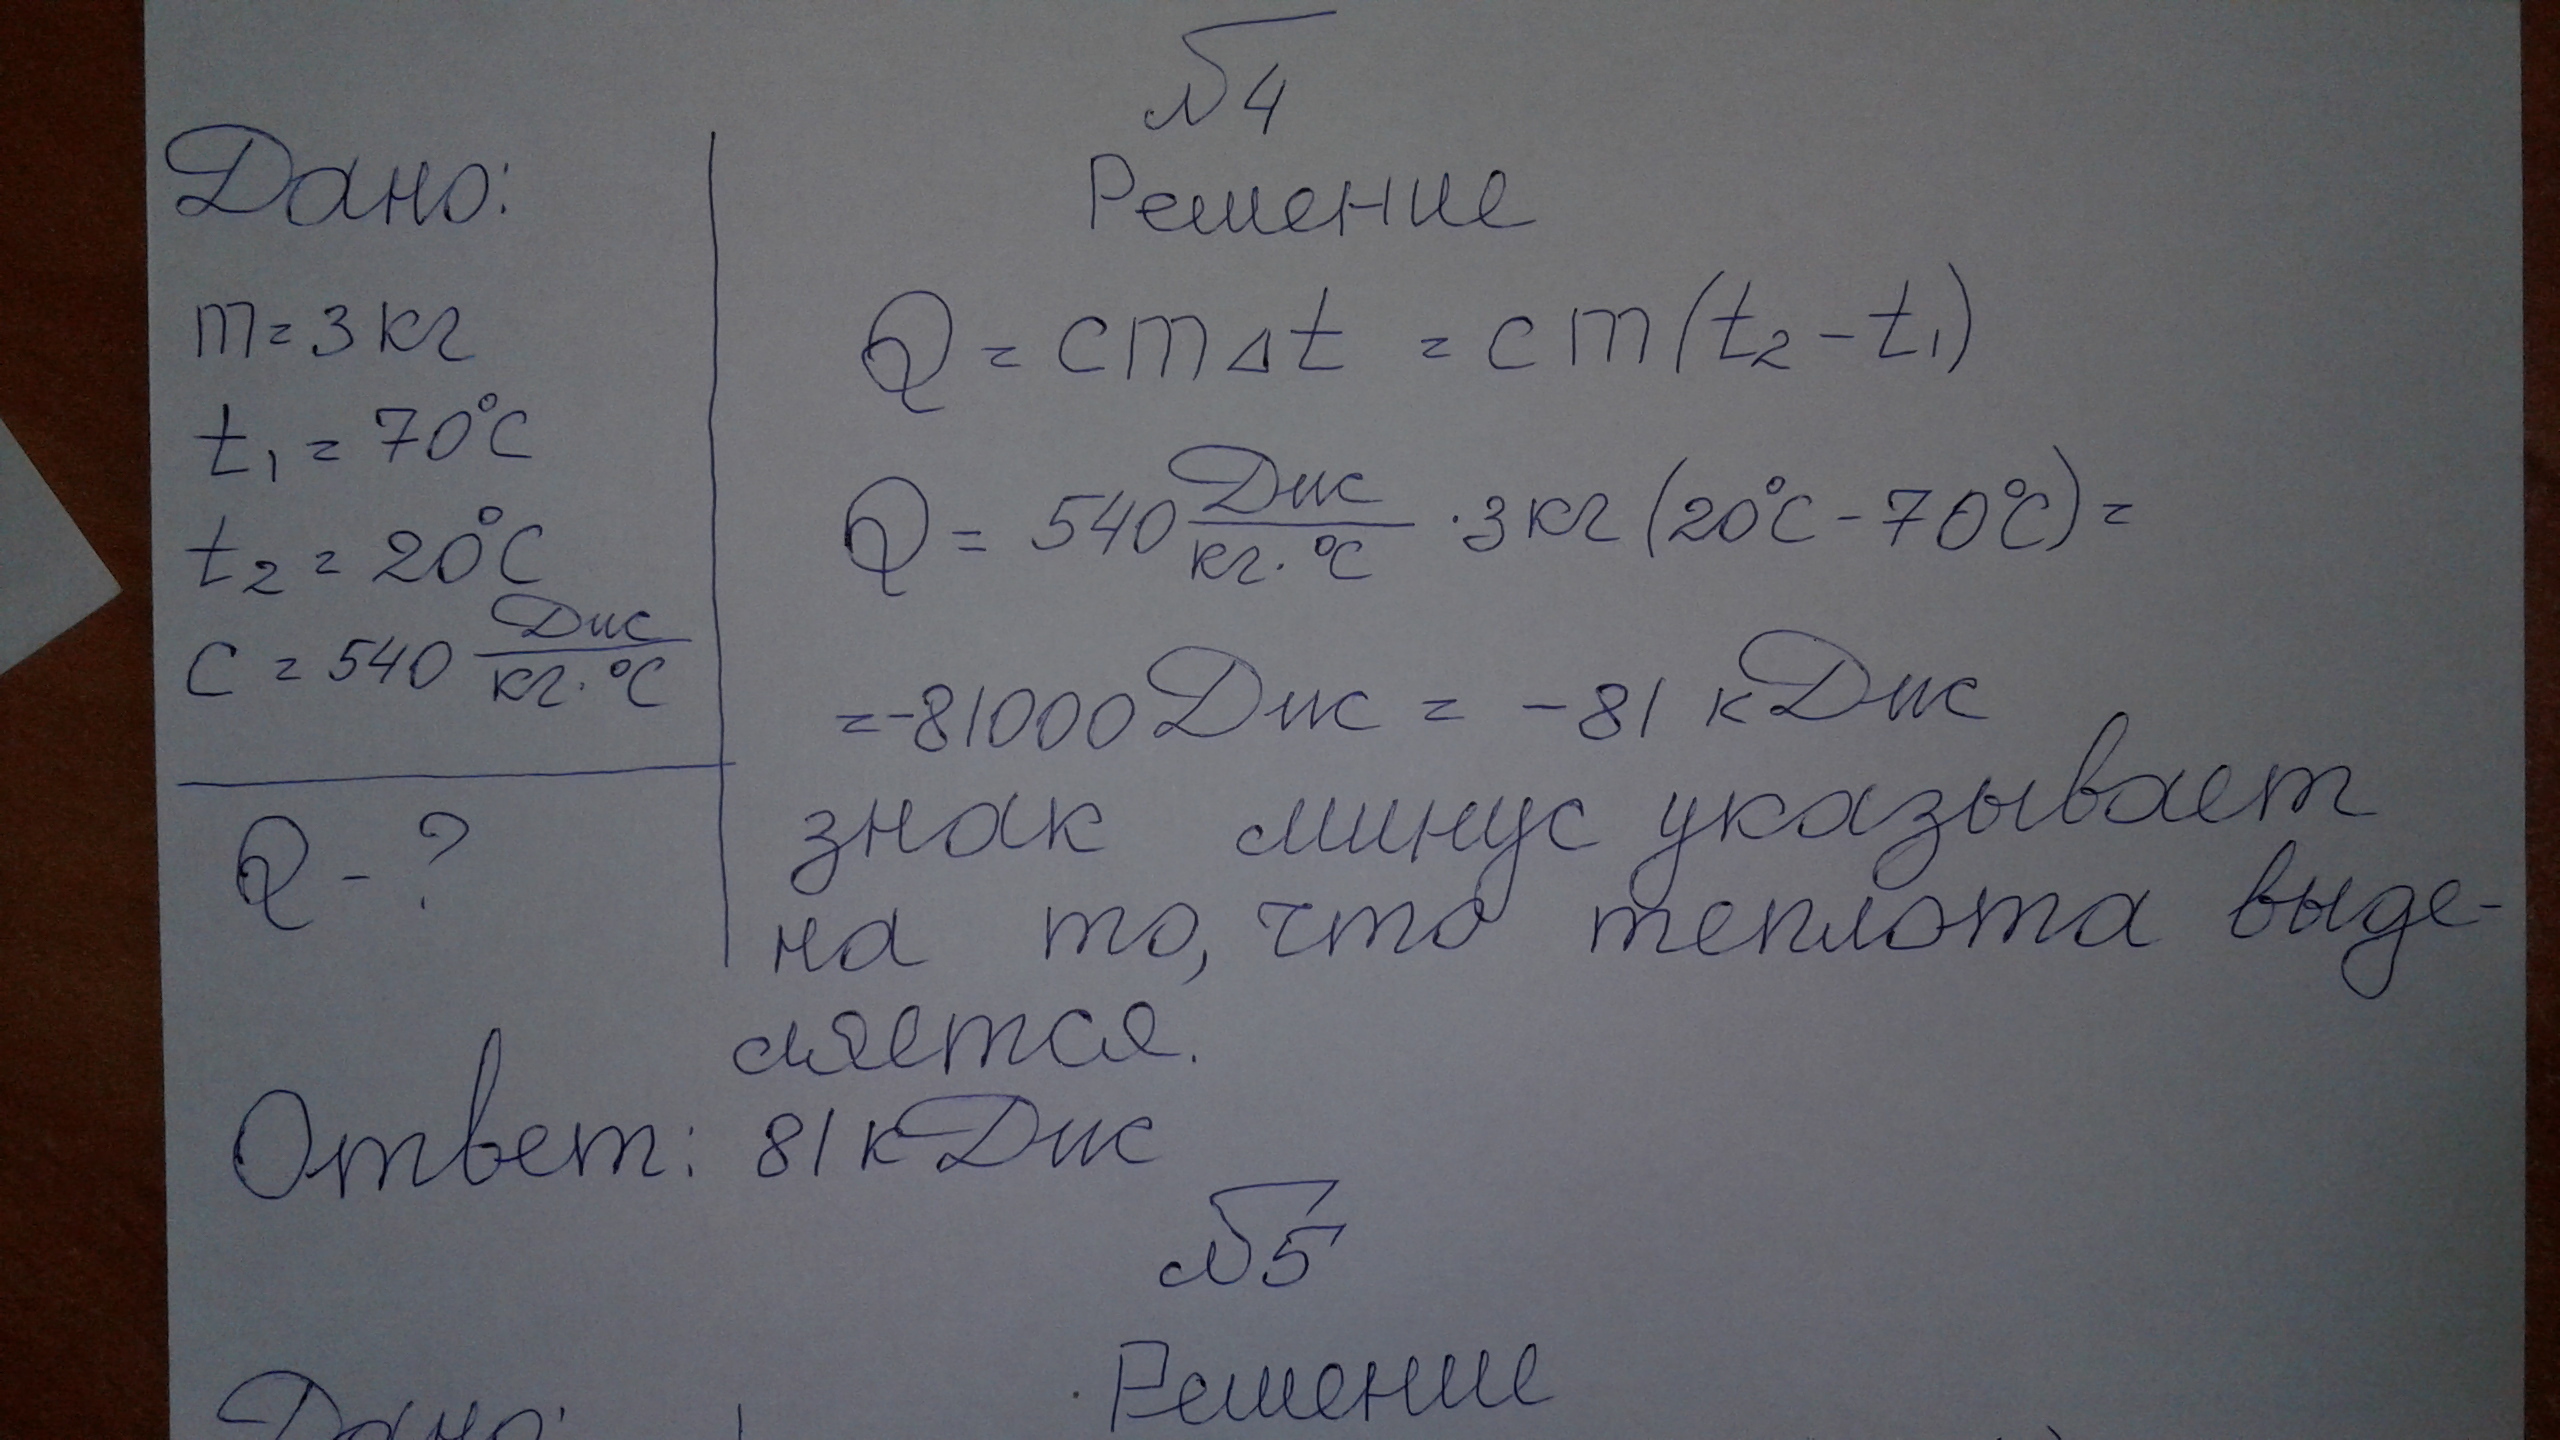 №4
Дано:
Решение
m = 3 кг
t₁ = 70°C
t₂ = 20°C
c = 540 Дж/кг·°C
Q - ?
Q = cmΔt = cm(t₂ - t₁)
Q = 540 Дж/кг·°C · 3 кг (20°C - 70°C) =
= -81000 Дж = -81 кДж
знак минус указывает
на то, что теплота выде-
ляется.
Ответ: 81 кДж
№5
Решение
Дано: